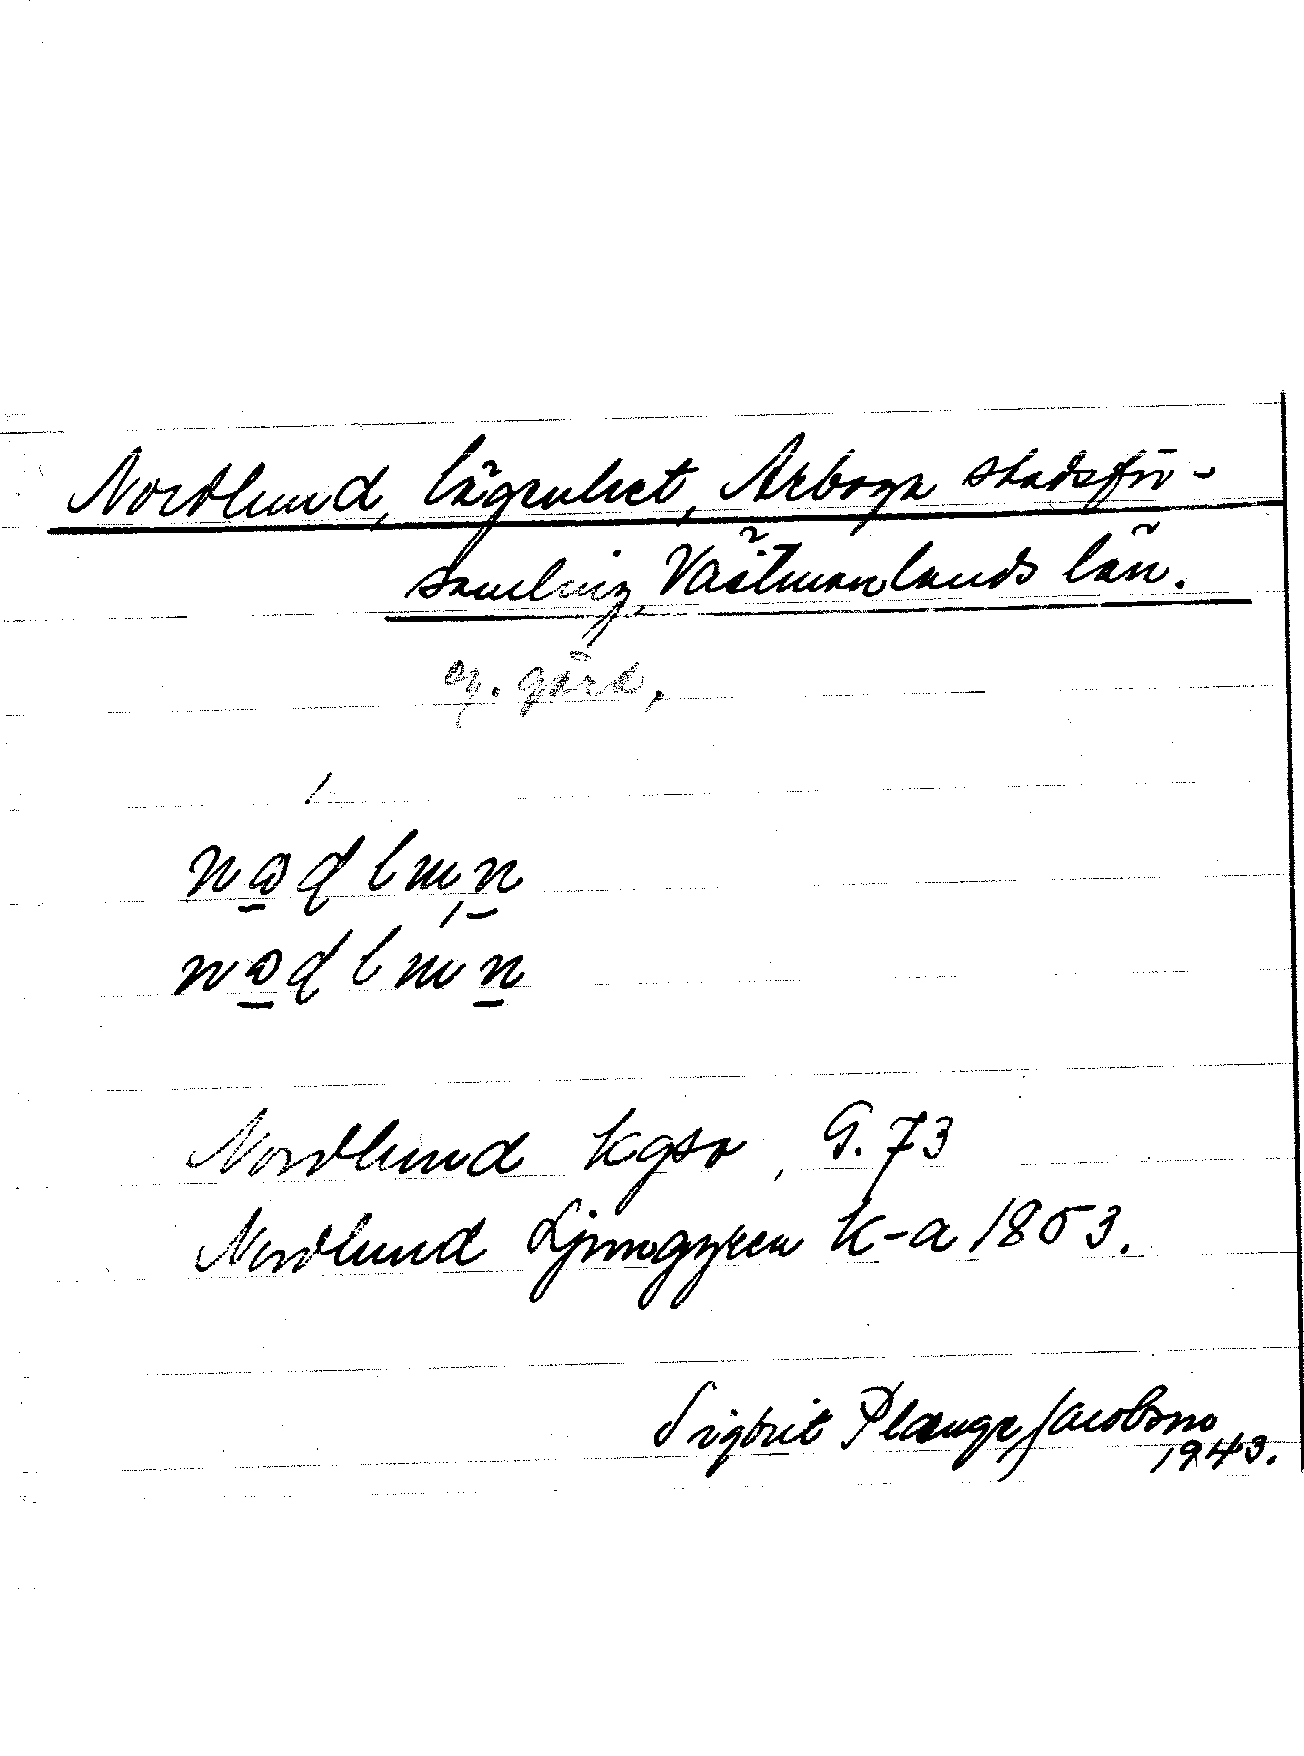 Nordlund, lägenhet, Arboga stadsför-
samling, Västmanlands län.
eg. gård,
Nordlund kgsr, G. 73
Nordlund Ljunggren K-a 1853.
Sigbrit Plænge Jacobson
1943.